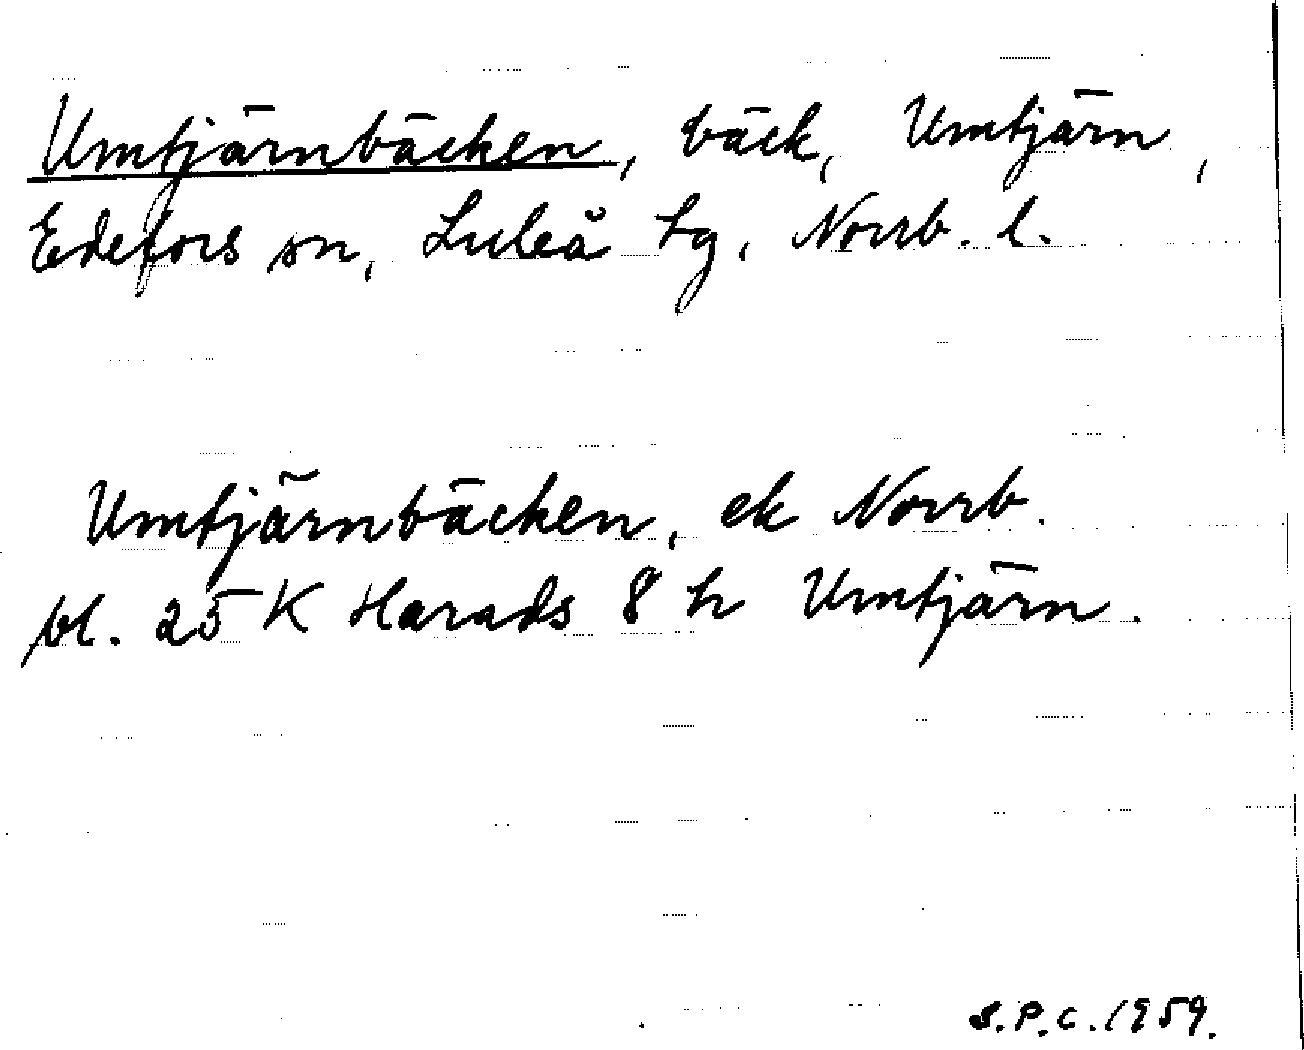 Umtjärnbäcken, bäck, Umtjärn,
Edefors sn, Luleå tg, Norrb. l.
Umtjärnbäcken, ek Norrb.
bl. 25 K Harads 8 h Umtjärn.
S.P.C. 1959.